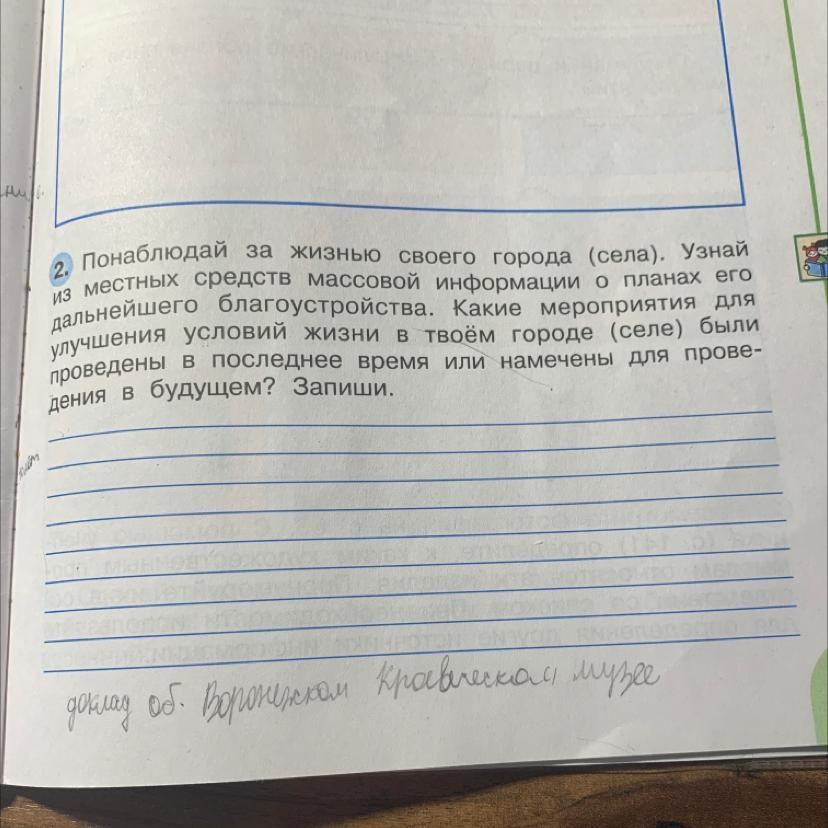 2. Понаблюдай за жизнью своего города (села). Узнай
из местных средств массовой информации о планах его
дальнейшего благоустройства. Какие мероприятия для
улучшения условий жизни в твоём городе (селе) были
проведены в последнее время или намечены для прове-
дения в будущем? Запиши.
доклад об. Воронежком Краевческом музее